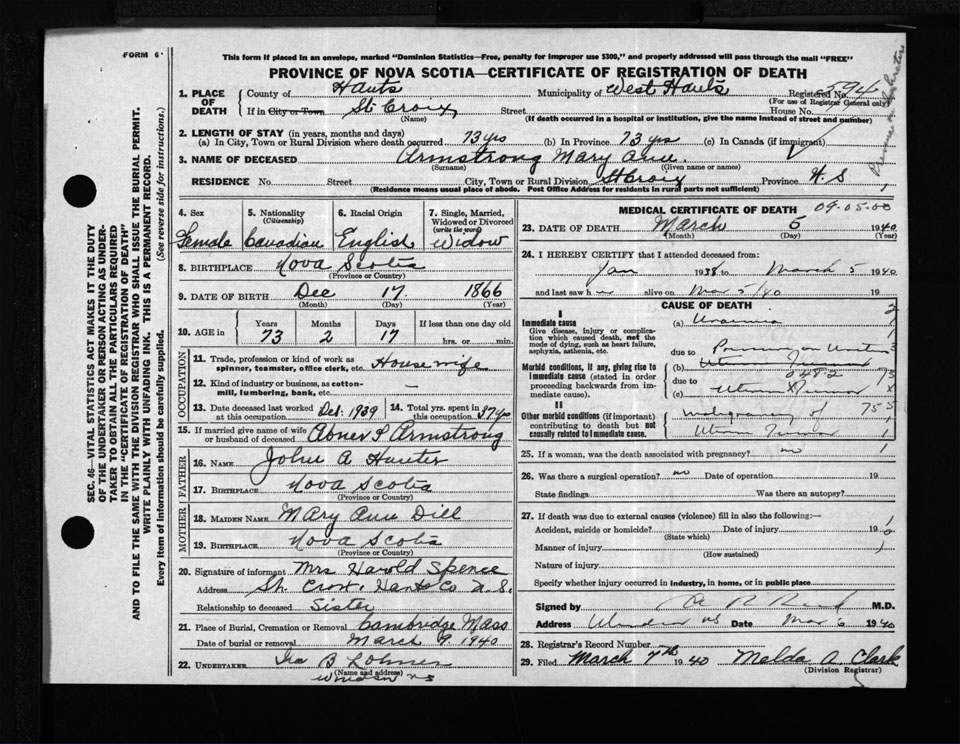 FORM 6
This form if placed in an envelope, marked "Dominion Statistics—Free, penalty for improper use $300," and properly addressed will pass through the mail "FREE"
PROVINCE OF NOVA SCOTIA—CERTIFICATE OF REGISTRATION OF DEATH
SEC. 46—VITAL STATISTICS ACT MAKES IT THE DUTY
OF THE UNDERTAKER OR PERSON ACTING AS UNDER-
TAKER TO OBTAIN ALL THE PARTICULARS REQUIRED
IN THE "CERTIFICATE OF REGISTRATION OF DEATH"
AND TO FILE THE SAME WITH THE DIVISION REGISTRAR WHO SHALL ISSUE THE BURIAL PERMIT.
WRITE PLAINLY WITH UNFADING INK. THIS IS A PERMANENT RECORD.
Every item of information should be carefully supplied. (See reverse side for instructions.)
1. PLACE OF DEATH County of Hants Municipality of West Hants Registered No. 94
(For use of Registrar General only)
If in City or Town St Croix Street House No.
(Name) (If death occurred in a hospital or institution, give the name instead of street and number)
2. LENGTH OF STAY (in years, months and days)
(a) In City, Town or Rural Division where death occurred 73 yrs (b) In Province 73 yrs (c) In Canada (if immigrant)
3. NAME OF DECEASED Armstrong Mary Ann
(Surname) (Given name or names)
RESIDENCE No. Street City, Town or Rural Division St Croix Province N.S
(Residence means usual place of abode. Post Office Address for residents in rural parts not sufficient)
4. Sex 5. Nationality (Citizenship) 6. Racial Origin 7. Single, Married, Widowed or Divorced (write the word)
Female Canadian English Widow
8. BIRTHPLACE Nova Scotia
(Province or Country)
9. DATE OF BIRTH Dec 17 1866
(Month) (Day) (Year)
10. AGE in Years Months Days If less than one day old
73 2 17 hrs. or min.
OCCUPATION
11. Trade, profession or kind of work as spinner, teamster, office clerk, etc. Housewife
12. Kind of industry or business, as cotton-mill, lumbering, bank, etc. —
13. Date deceased last worked at this occupation Dec. 1939 14. Total yrs. spent in this occupation
15. If married give name of wife or husband of deceased Abner S Armstrong
FATHER
16. NAME John A Hunter
17. BIRTHPLACE Nova Scotia
(Province or Country)
MOTHER
18. MAIDEN NAME Mary Ann Dill
19. BIRTHPLACE Nova Scotia
(Province or Country)
20. Signature of informant Mrs Harold Spence
Address St. Croix Hants Co N.S.
Relationship to deceased Sister
21. Place of Burial, Cremation or Removal Cambridge Mass
Date of burial or removal March 9 1940
22. UNDERTAKER Ira B Lohnes
(Name and address)
Windsor NS
MEDICAL CERTIFICATE OF DEATH 09-05-00
23. DATE OF DEATH March 5 1940
(Month) (Day) (Year)
24. I HEREBY CERTIFY that I attended deceased from:
Jan 1938 to March 5 1940
and last saw h alive on Mar 5/40 19
CAUSE OF DEATH
I
Immediate cause
Give disease, injury or complication which caused death, not the mode of dying, such as heart failure, asphyxia, asthenia, etc.
(a) Uraemia
due to
Morbid conditions, if any, giving rise to immediate cause (stated in order proceeding backwards from immediate cause).
(b)
due to
(c)
II
Other morbid conditions (if important) contributing to death but not causally related to immediate cause.
malignancy of
25. If a woman, was the death associated with pregnancy? no
26. Was there a surgical operation? no Date of operation 19
State findings Was there an autopsy?
27. If death was due to external causes (violence) fill in also the following:—
Accident, suicide or homicide? Date of injury 19
(State which)
Manner of injury
(How sustained)
Nature of injury
Specify whether injury occurred in industry, in home, or in public place
Signed by M.D.
Address Windsor NS Date Mar 6 1940
28. Registrar's Record Number
29. Filed March 7th 1940 Melda A. Clark
(Division Registrar)